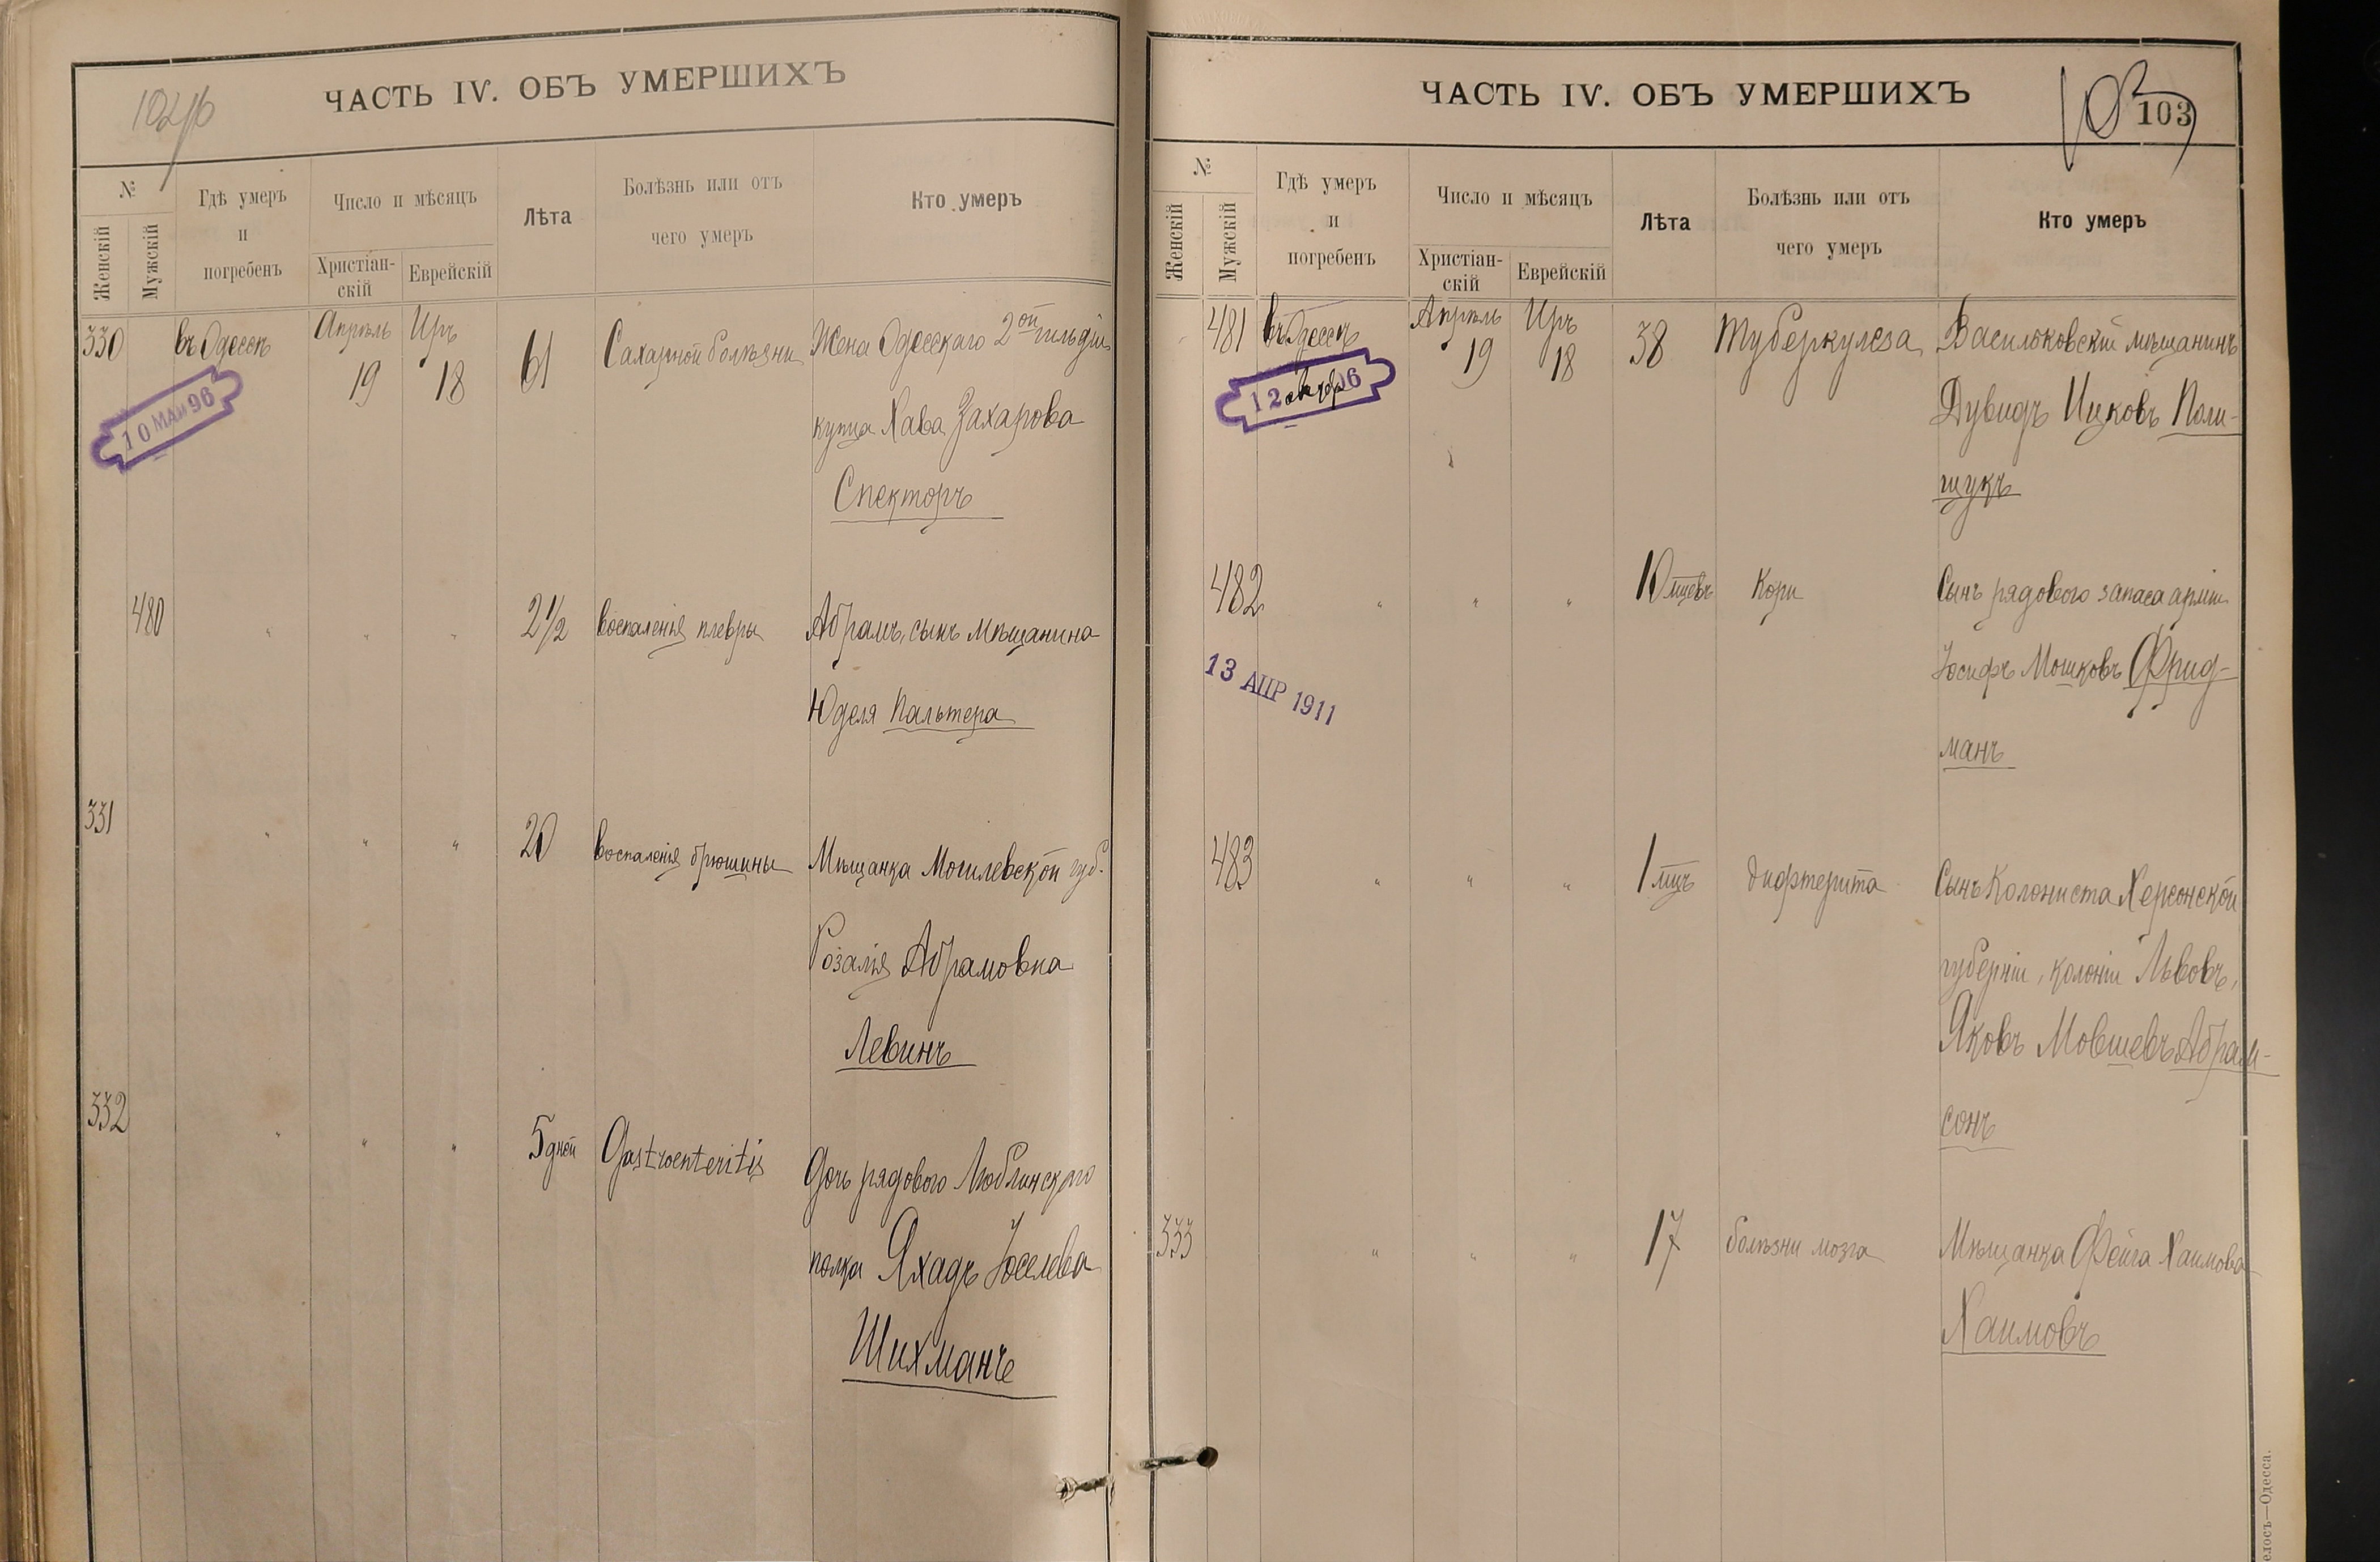 102 об
ЧАСТЬ IV. ОБЪ УМЕРШИХЪ
№
Женскій
Мужскій
Гдѣ умеръ
и
погребенъ
Число и мѣсяцъ
Христіан-
скій
Еврейскій
Лѣта
Болѣзнь или отъ
чего умеръ
Кто умеръ
330 въ Одессѣ Апрѣль 19 Иръ 18 61 Сахарной болѣзни Жена Одесскаго 2ой гильдіи
купца Хава Захарова
Спекторъ
10 МАЯ 96
480 " " " 2½ воспаленія плевры Абрамъ, сынъ мѣщанина
Юделя Пальтера
331 " " " 20 воспаленія брюшины Мѣщанка Могилевской губ.
Розалія Абрамовна
Левинъ
332 " " " 5 дней Gastroenteritis Дочь рядового Люблинскаго
полка Яхадъ Іоселева
Шихманъ
ЧАСТЬ IV. ОБЪ УМЕРШИХЪ
103
103
№
Женскій
Мужскій
Гдѣ умеръ
и
погребенъ
Число и мѣсяцъ
Христіан-
скій
Еврейскій
Лѣта
Болѣзнь или отъ
чего умеръ
Кто умеръ
481 въ Одессѣ Апрѣль 19 Иръ 18 38 Туберкулеза Васильковскій мѣщанинъ
Дувидъ Ицковъ Поли-
щукъ
482 " " " 10 мцевъ Кори Сынъ рядового запаса арміи
Іосифъ Мошковъ Фрид-
манъ
13 АПР 1911
483 " " " 1 мцъ дифтерита Сынъ Колониста Херсонской
губерніи, колоніи Львовъ,
Яковъ Мовшевъ Абрам-
сонъ
333 " " " 17 болѣзни мозга Мѣщанка Фейга Хаимова
Хаимовъ
Одесса.